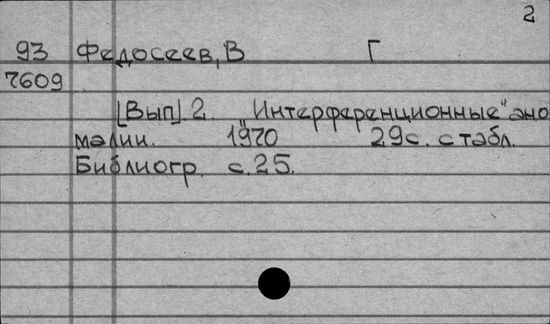 2
93 Федосеев, В Г
7609
[Вып]. 2. "Интерференционные" ано
малии. 1970 29с. с табл.
Библиогр. с. 25.